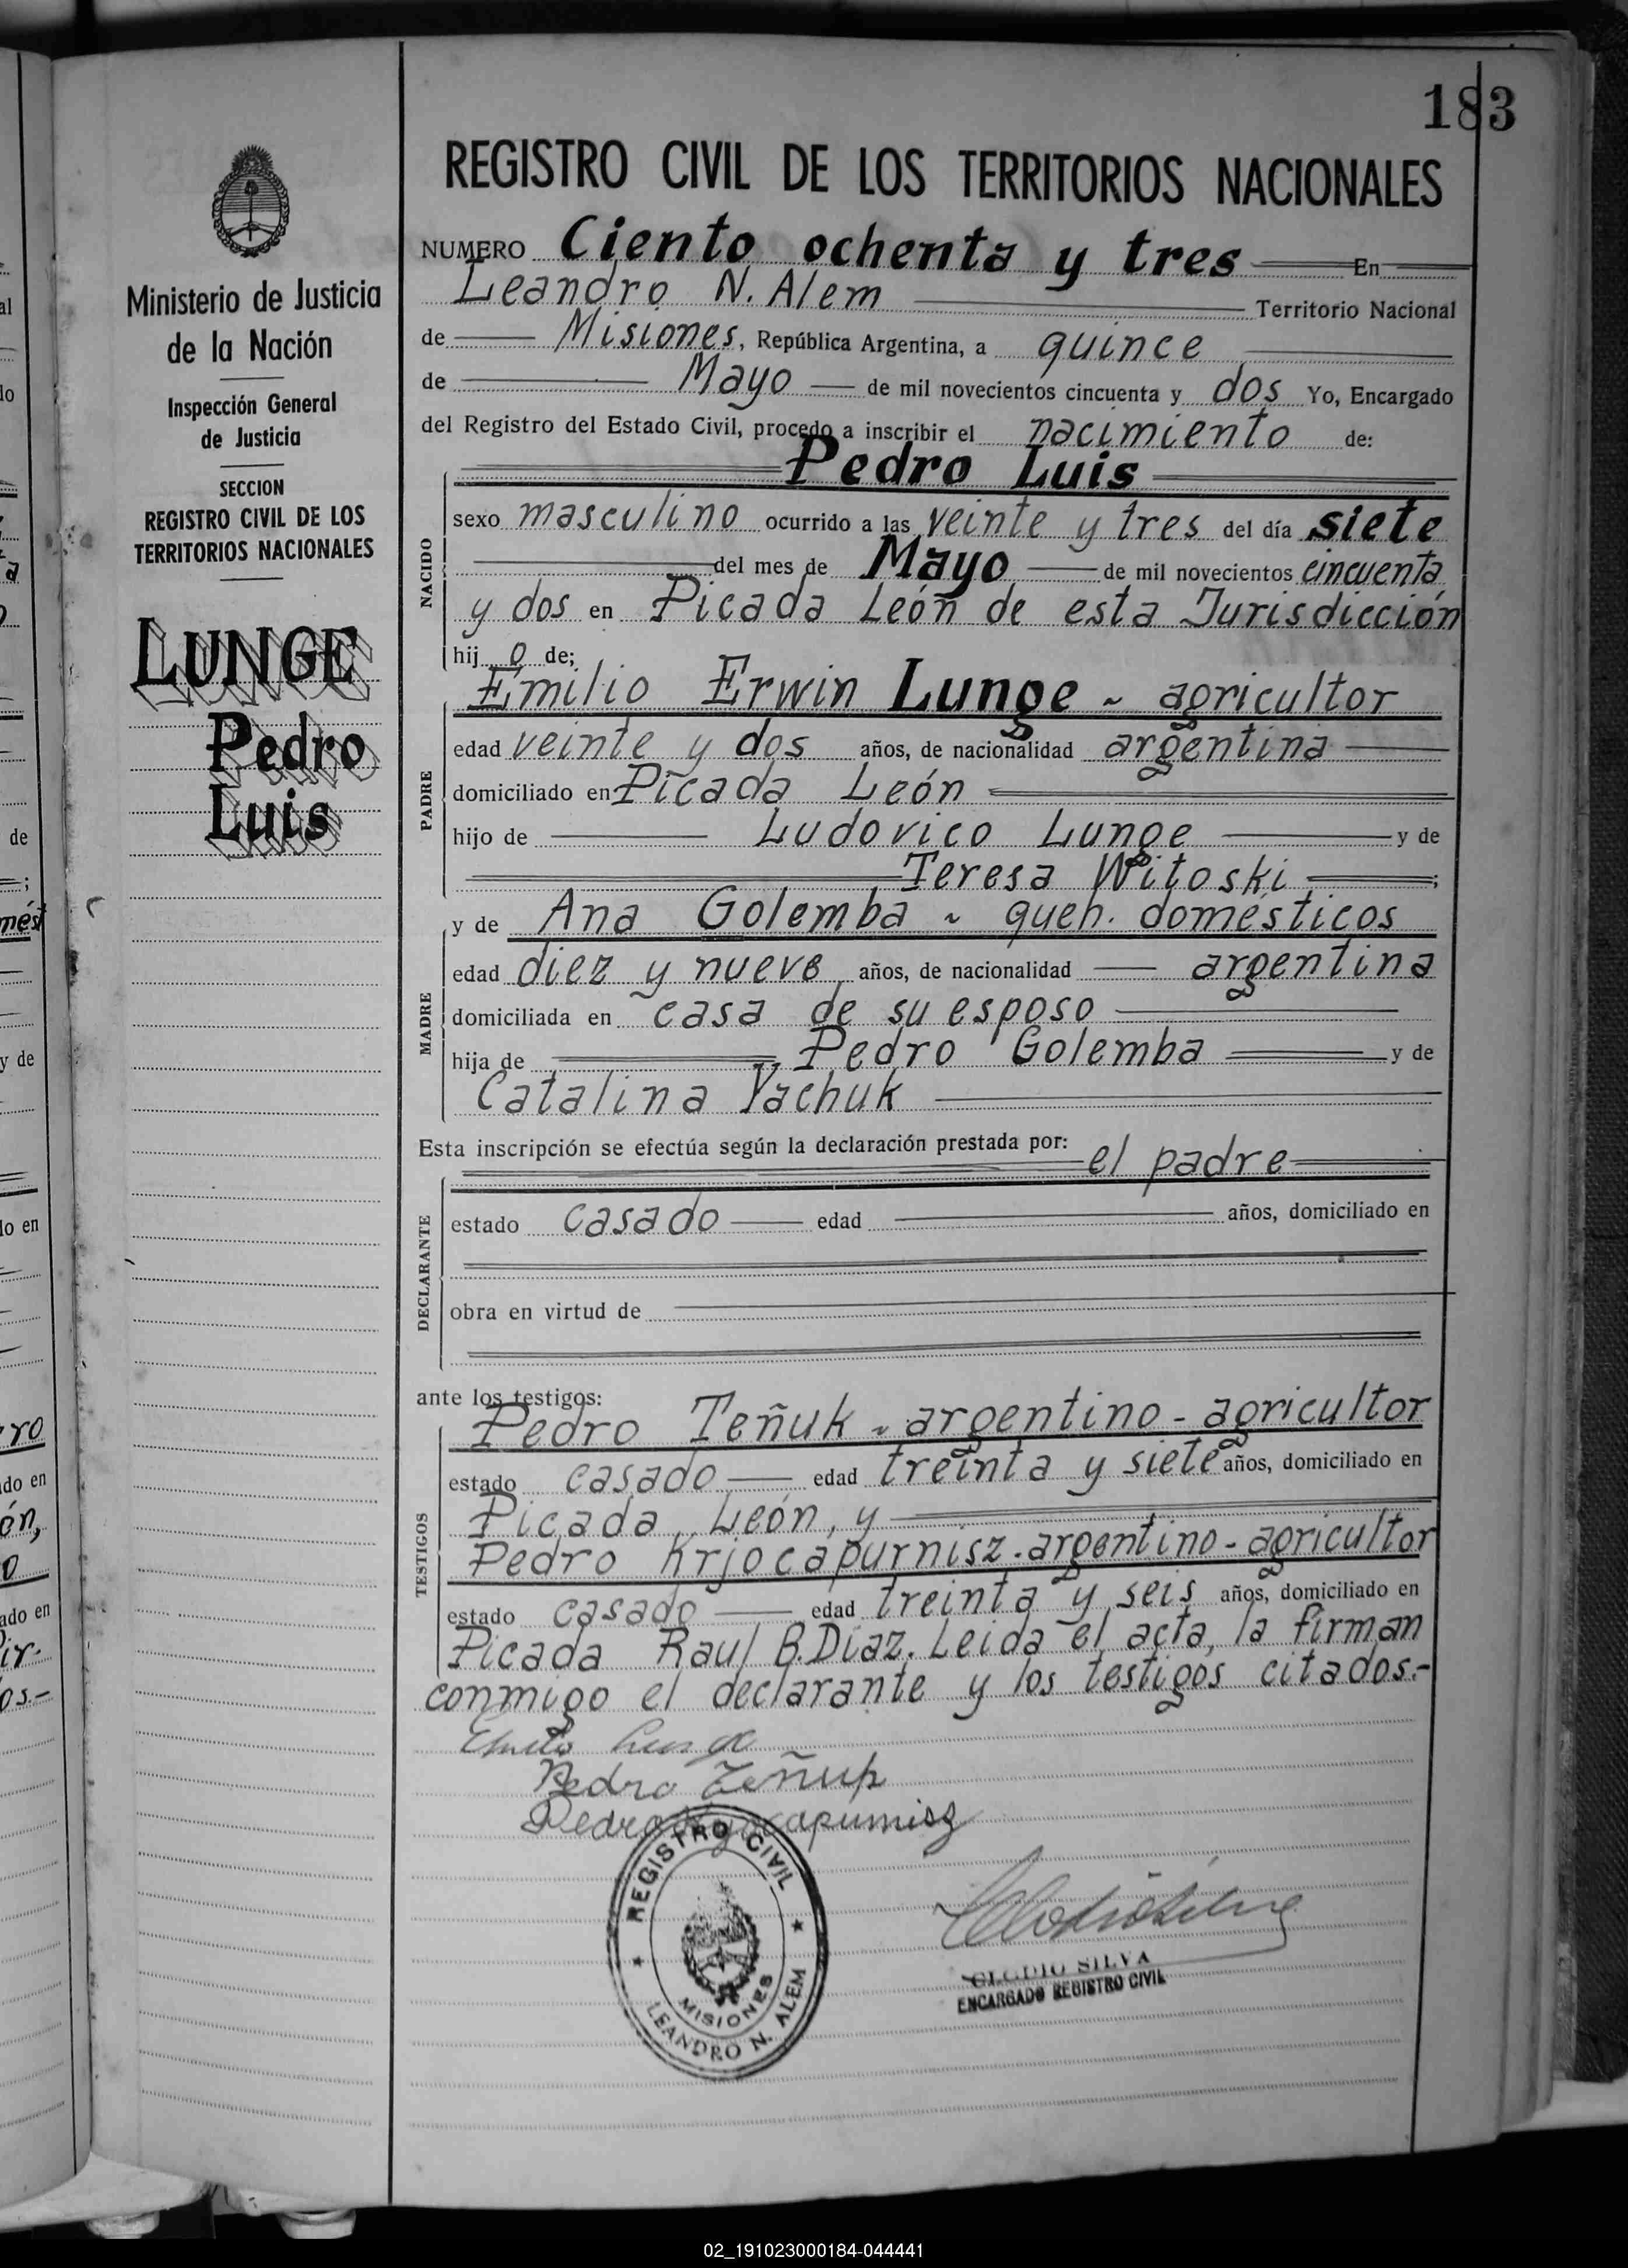 183
REGISTRO CIVIL DE LOS TERRITORIOS NACIONALES
Ministerio de Justicia
de la Nación
Inspección General
de Justicia
SECCION
REGISTRO CIVIL DE LOS
TERRITORIOS NACIONALES
LUNGE
Pedro
Luis
NUMERO Ciento ochenta y tres En
Leandro N. Alem Territorio Nacional
de Misiones, República Argentina, a quince
de Mayo de mil novecientos cincuenta y dos Yo, Encargado
del Registro del Estado Civil, procedo a inscribir el nacimiento de:
Pedro Luis
NACIDO
sexo masculino ocurrido a las veinte y tres del día siete
del mes de Mayo de mil novecientos cincuenta
y dos en Picada León de esta Jurisdicción
hij o de;
Emilio Erwin Lunge - agricultor
PADRE
edad veinte y dos años, de nacionalidad argentina
domiciliado en Picada León
hijo de Ludovico Lunge y de
Teresa Witoski ;
y de Ana Golemba - queh. domésticos
MADRE
edad diez y nueve años, de nacionalidad argentina
domiciliada en casa de su esposo
hija de Pedro Golemba y de
Catalina Yachuk
Esta inscripción se efectúa según la declaración prestada por: el padre
DECLARANTE
estado casado edad años, domiciliado en
obra en virtud de
ante los testigos:
Pedro Teñuk - argentino - agricultor
TESTIGOS
estado casado edad treinta y siete años, domiciliado en
Picada León, y
Pedro Krjocapurnisz - argentino - agricultor
estado casado edad treinta y seis años, domiciliado en
Picada Raul B. Díaz. Leida el acta, la firman
conmigo el declarante y los testigos citados.-
Emilio Lunge
Pedro Teñuk
REGISTRO CIVIL
MISIONES
LEANDRO N. ALEM
CLODIO SILVA
ENCARGADO REGISTRO CIVIL
02_191023000184-044441